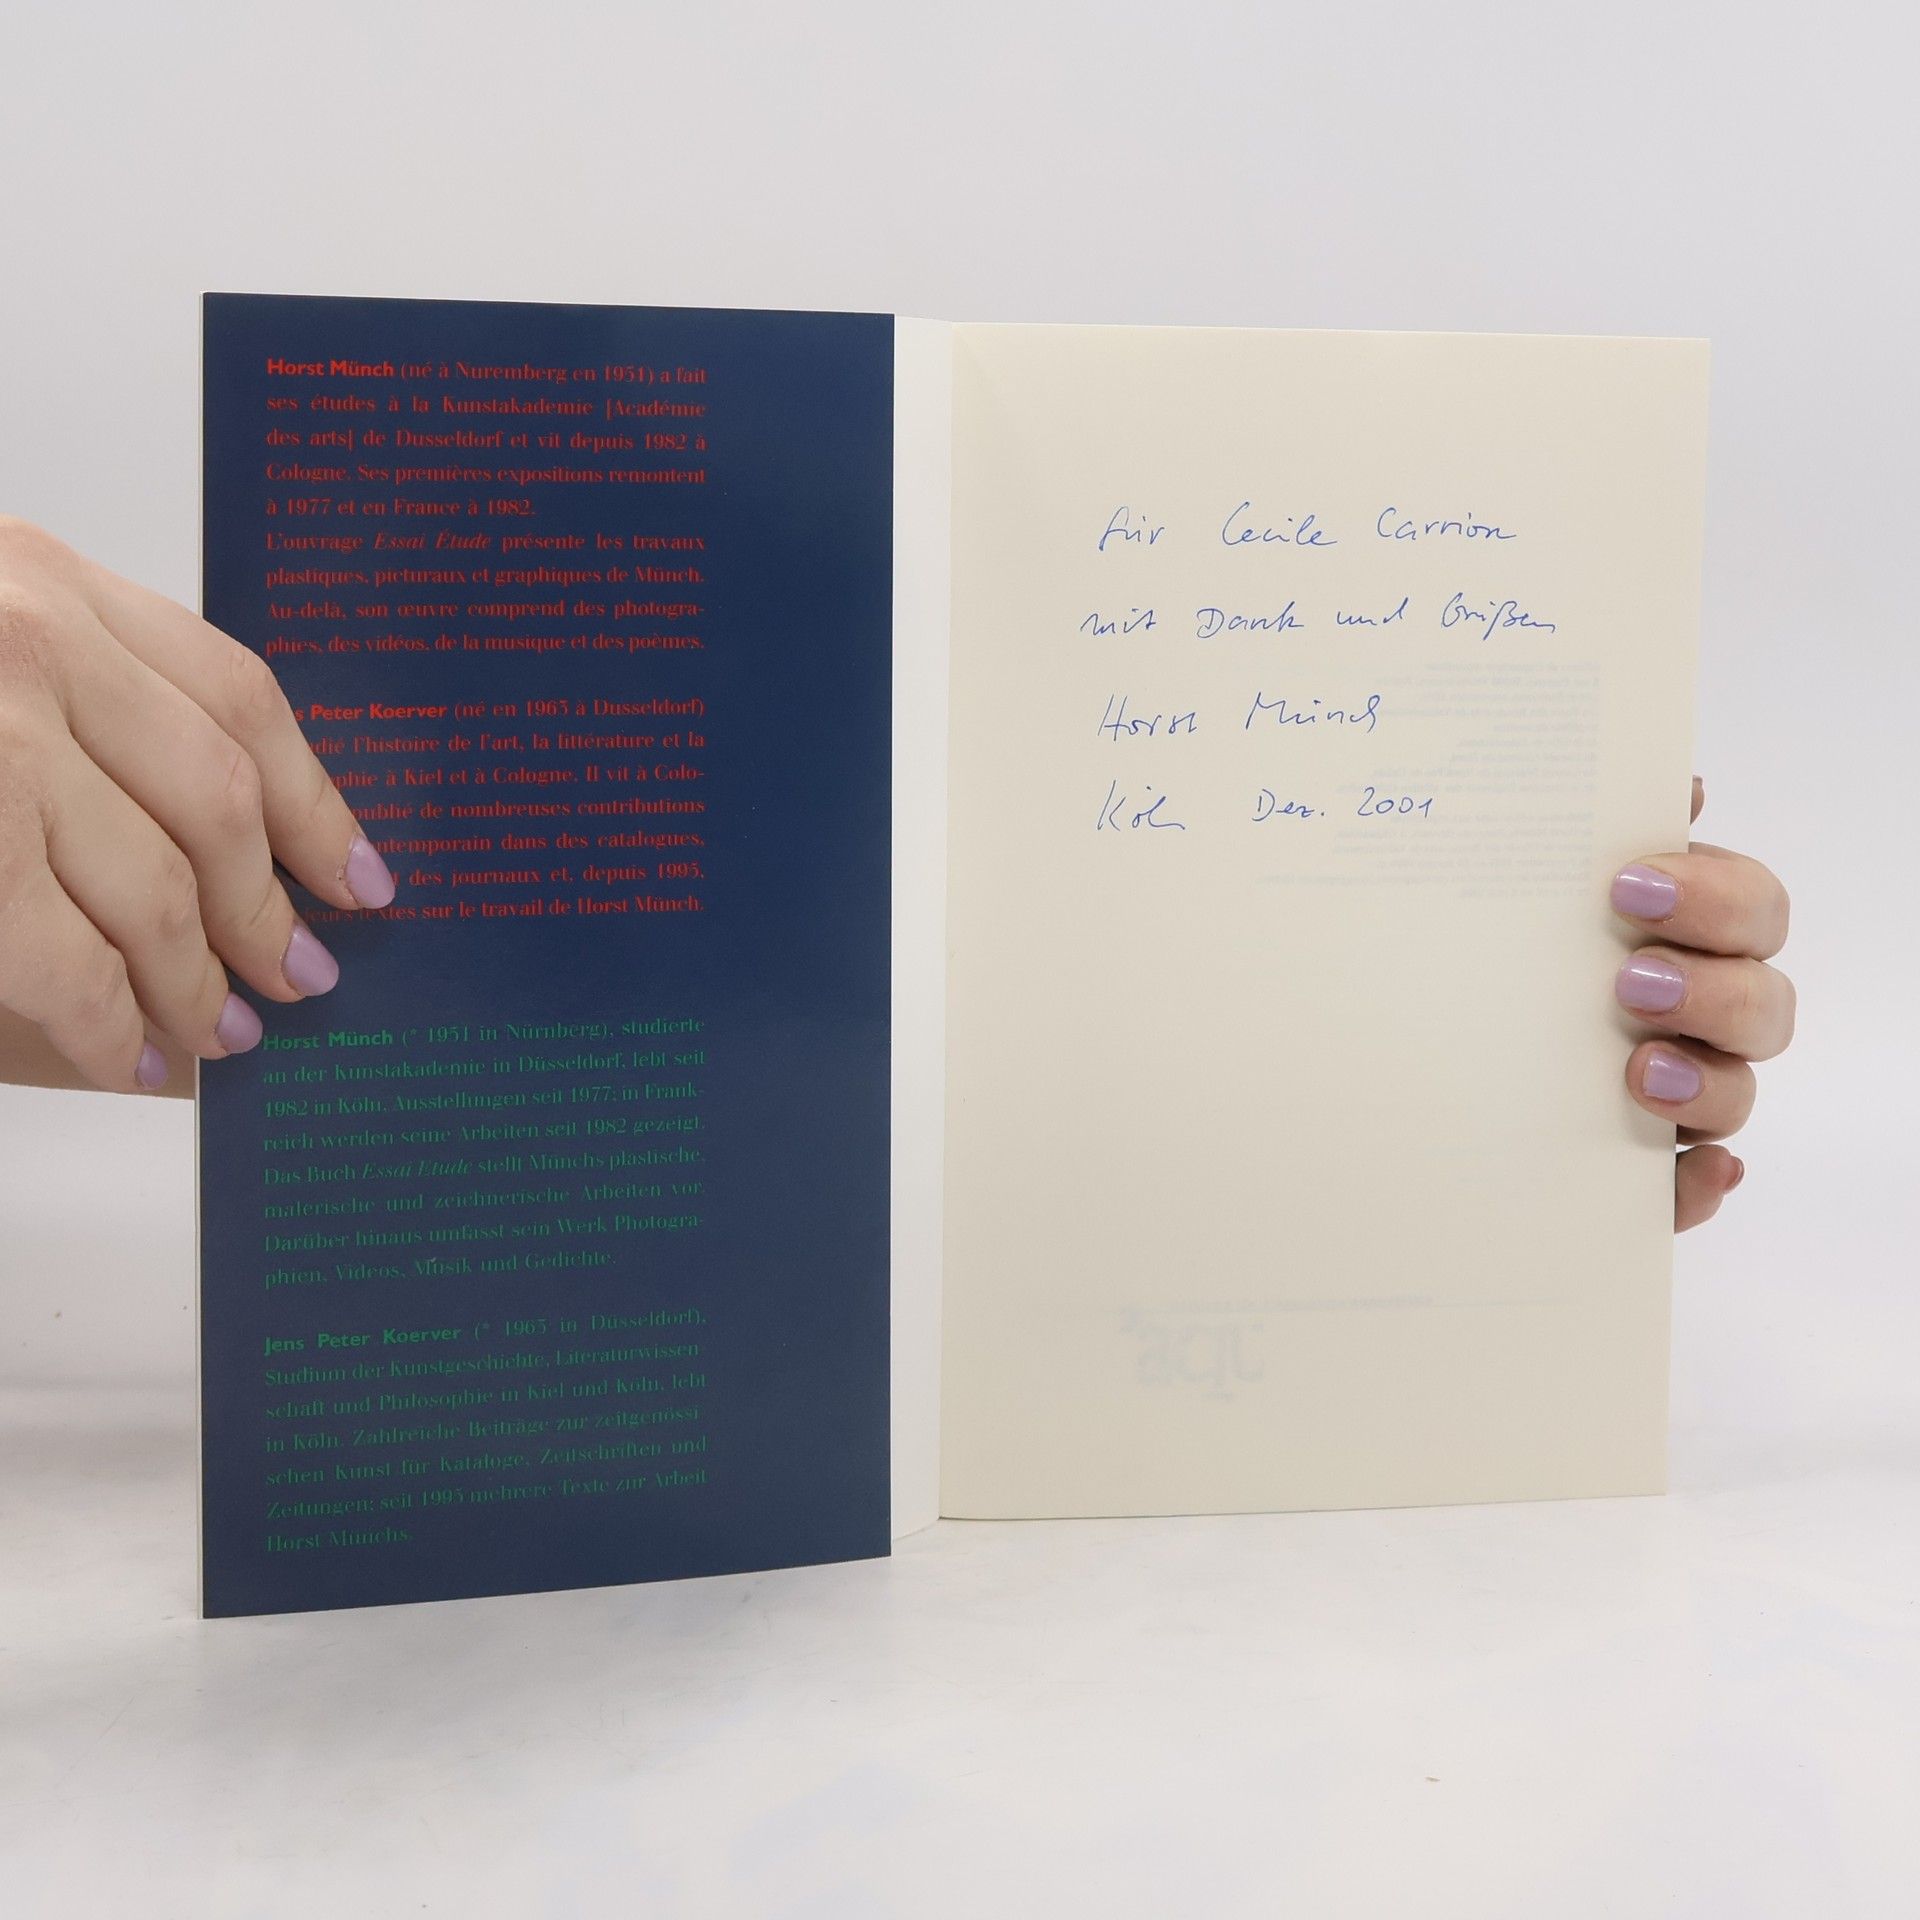 Horst Münch (né à Nuremberg en 1951) a fait
ses études à la Kunstakademie [Académie
des arts] de Dusseldorf et vit depuis 1982 à
Cologne. Ses premières expositions remontent
à 1977 et en France à 1982.
L'ouvrage Essai Étude présente les travaux
plastiques, picturaux et graphiques de Münch.
Au-delà, son œuvre comprend des photogra-
phies, des vidéos, de la musique et des poèmes.
s Peter Koerver (né en 1963 à Dusseldorf)
dié l'histoire de l'art, la littérature et la
phie à Kiel et à Cologne. Il vit à Colo-
publié de nombreuses contributions
ntemporain dans des catalogues,
t des journaux et, depuis 1995,
eurs textes sur le travail de Horst Münch.
Horst Münch (* 1951 in Nürnberg), studierte
an der Kunstakademie in Düsseldorf, lebt seit
1982 in Köln. Ausstellungen seit 1977; in Frank-
reich werden seine Arbeiten seit 1982 gezeigt.
Das Buch Essai Etude stellt Münchs plastische,
malerische und zeichnerische Arbeiten vor.
Darüber hinaus umfasst sein Werk Photogra-
phien, Videos, Musik und Gedichte.
Jens Peter Koerver (* 1963 in Düsseldorf),
Studium der Kunstgeschichte, Literaturwissen-
schaft und Philosophie in Kiel und Köln, lebt
in Köln. Zahlreiche Beiträge zur zeitgenössi-
schen Kunst für Kataloge, Zeitschriften und
Zeitungen; seit 1995 mehrere Texte zur Arbeit
Horst Münchs.
für Cecile Carrion
mit Dank und Grüßen
Horst Münch
Köln Dez. 2001